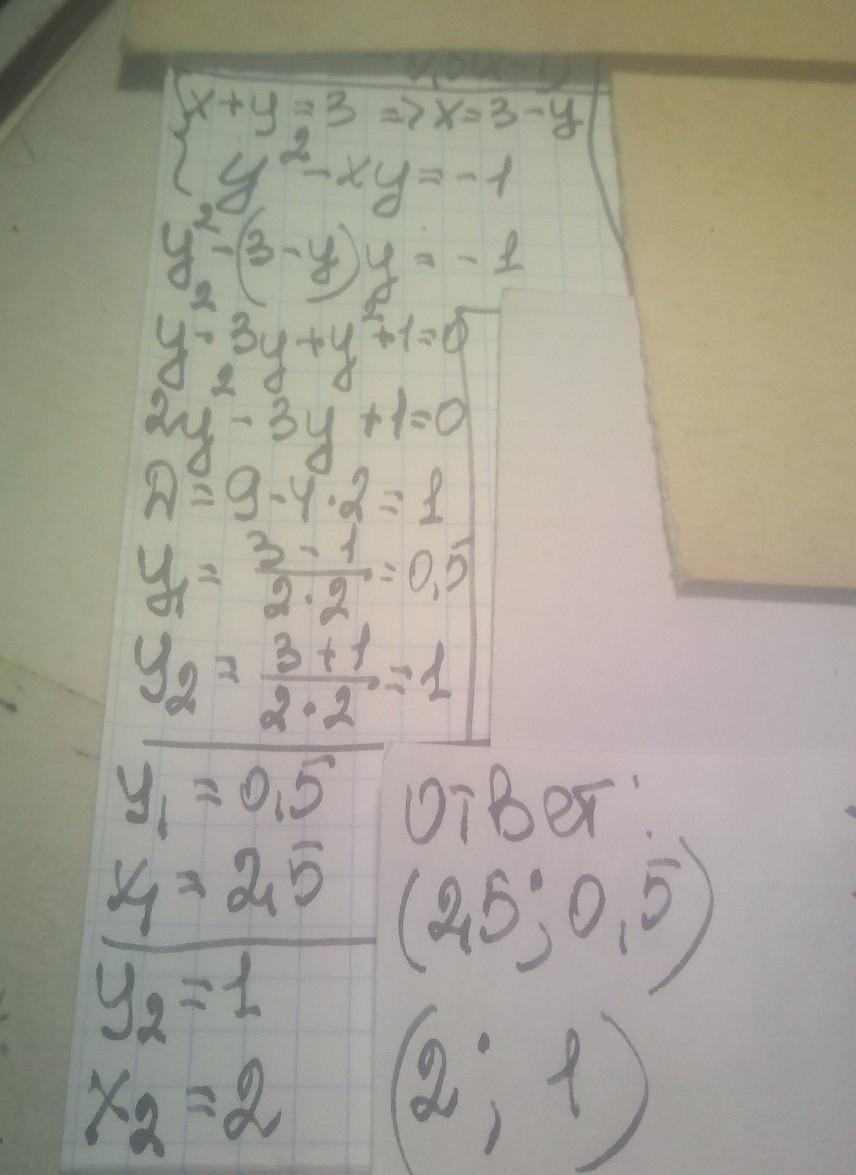 x+y=3 => x=3-y
y²-xy=-1
y²-(3-y)y=-1
y²-3y+y²+1=0
2y²-3y+1=0
D=9-4·2=1
y₁=(3-1)/(2·2)=0,5
y₂=(3+1)/(2·2)=1
y₁=0,5
x₁=2,5
y₂=1
x₂=2
Ответ:
(2,5; 0,5)
(2; 1)